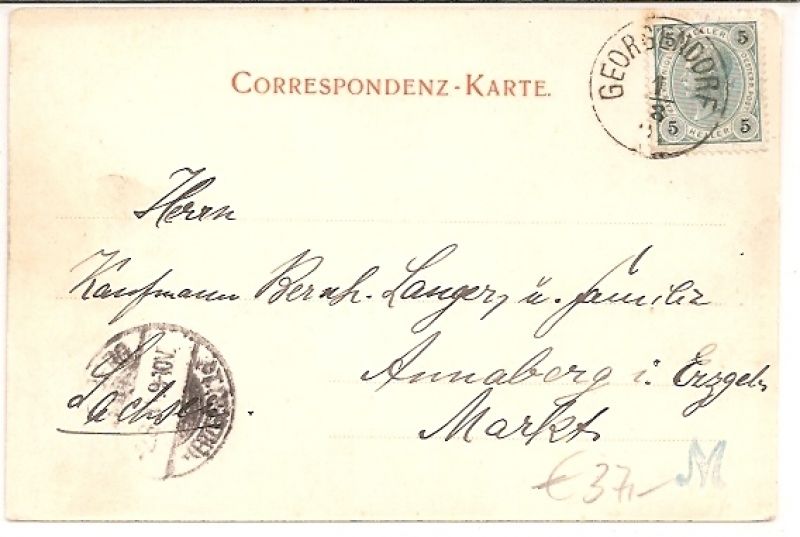 CORRESPONDENZ-KARTE.
GEORGENDORF
1/8
5 HELLER 5
5 HELLER 5
Herrn
Kaufmann Bernh. Langer, u. Familie
Annaberg i. Erzgeb.
Markt
Sachsen.
9-10V.
€ 37,-
M